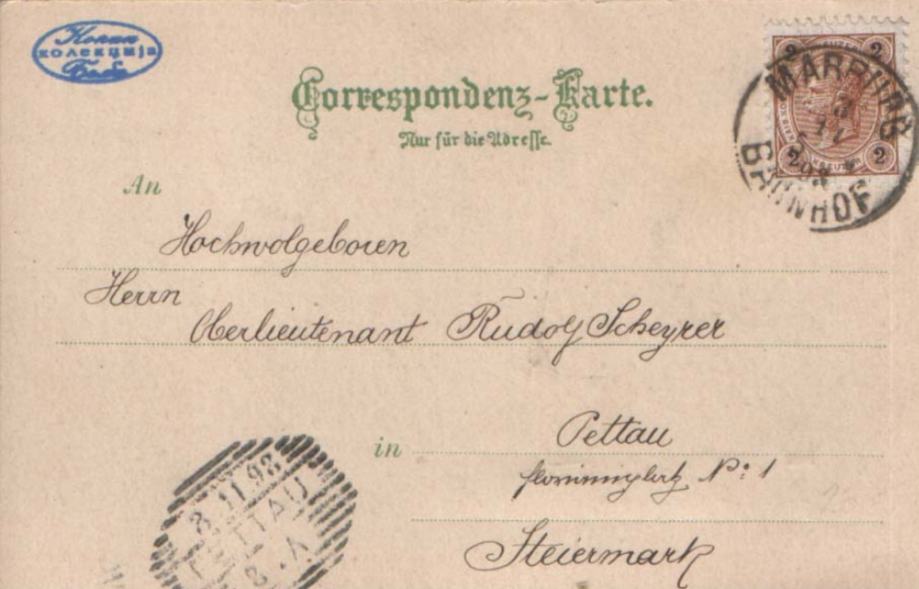 колекција
2 2
Correspondenz-Karte.
Nur für die Adresse.
MARBURG
BAHNHOF
2 KREUZER 2
An
Hochwolgeboren
Herrn
Oberlieutenant Rudolf Scheyrer
in Pettau
No: 1
Steiermark
3 11 98
PETTAU
8 . A